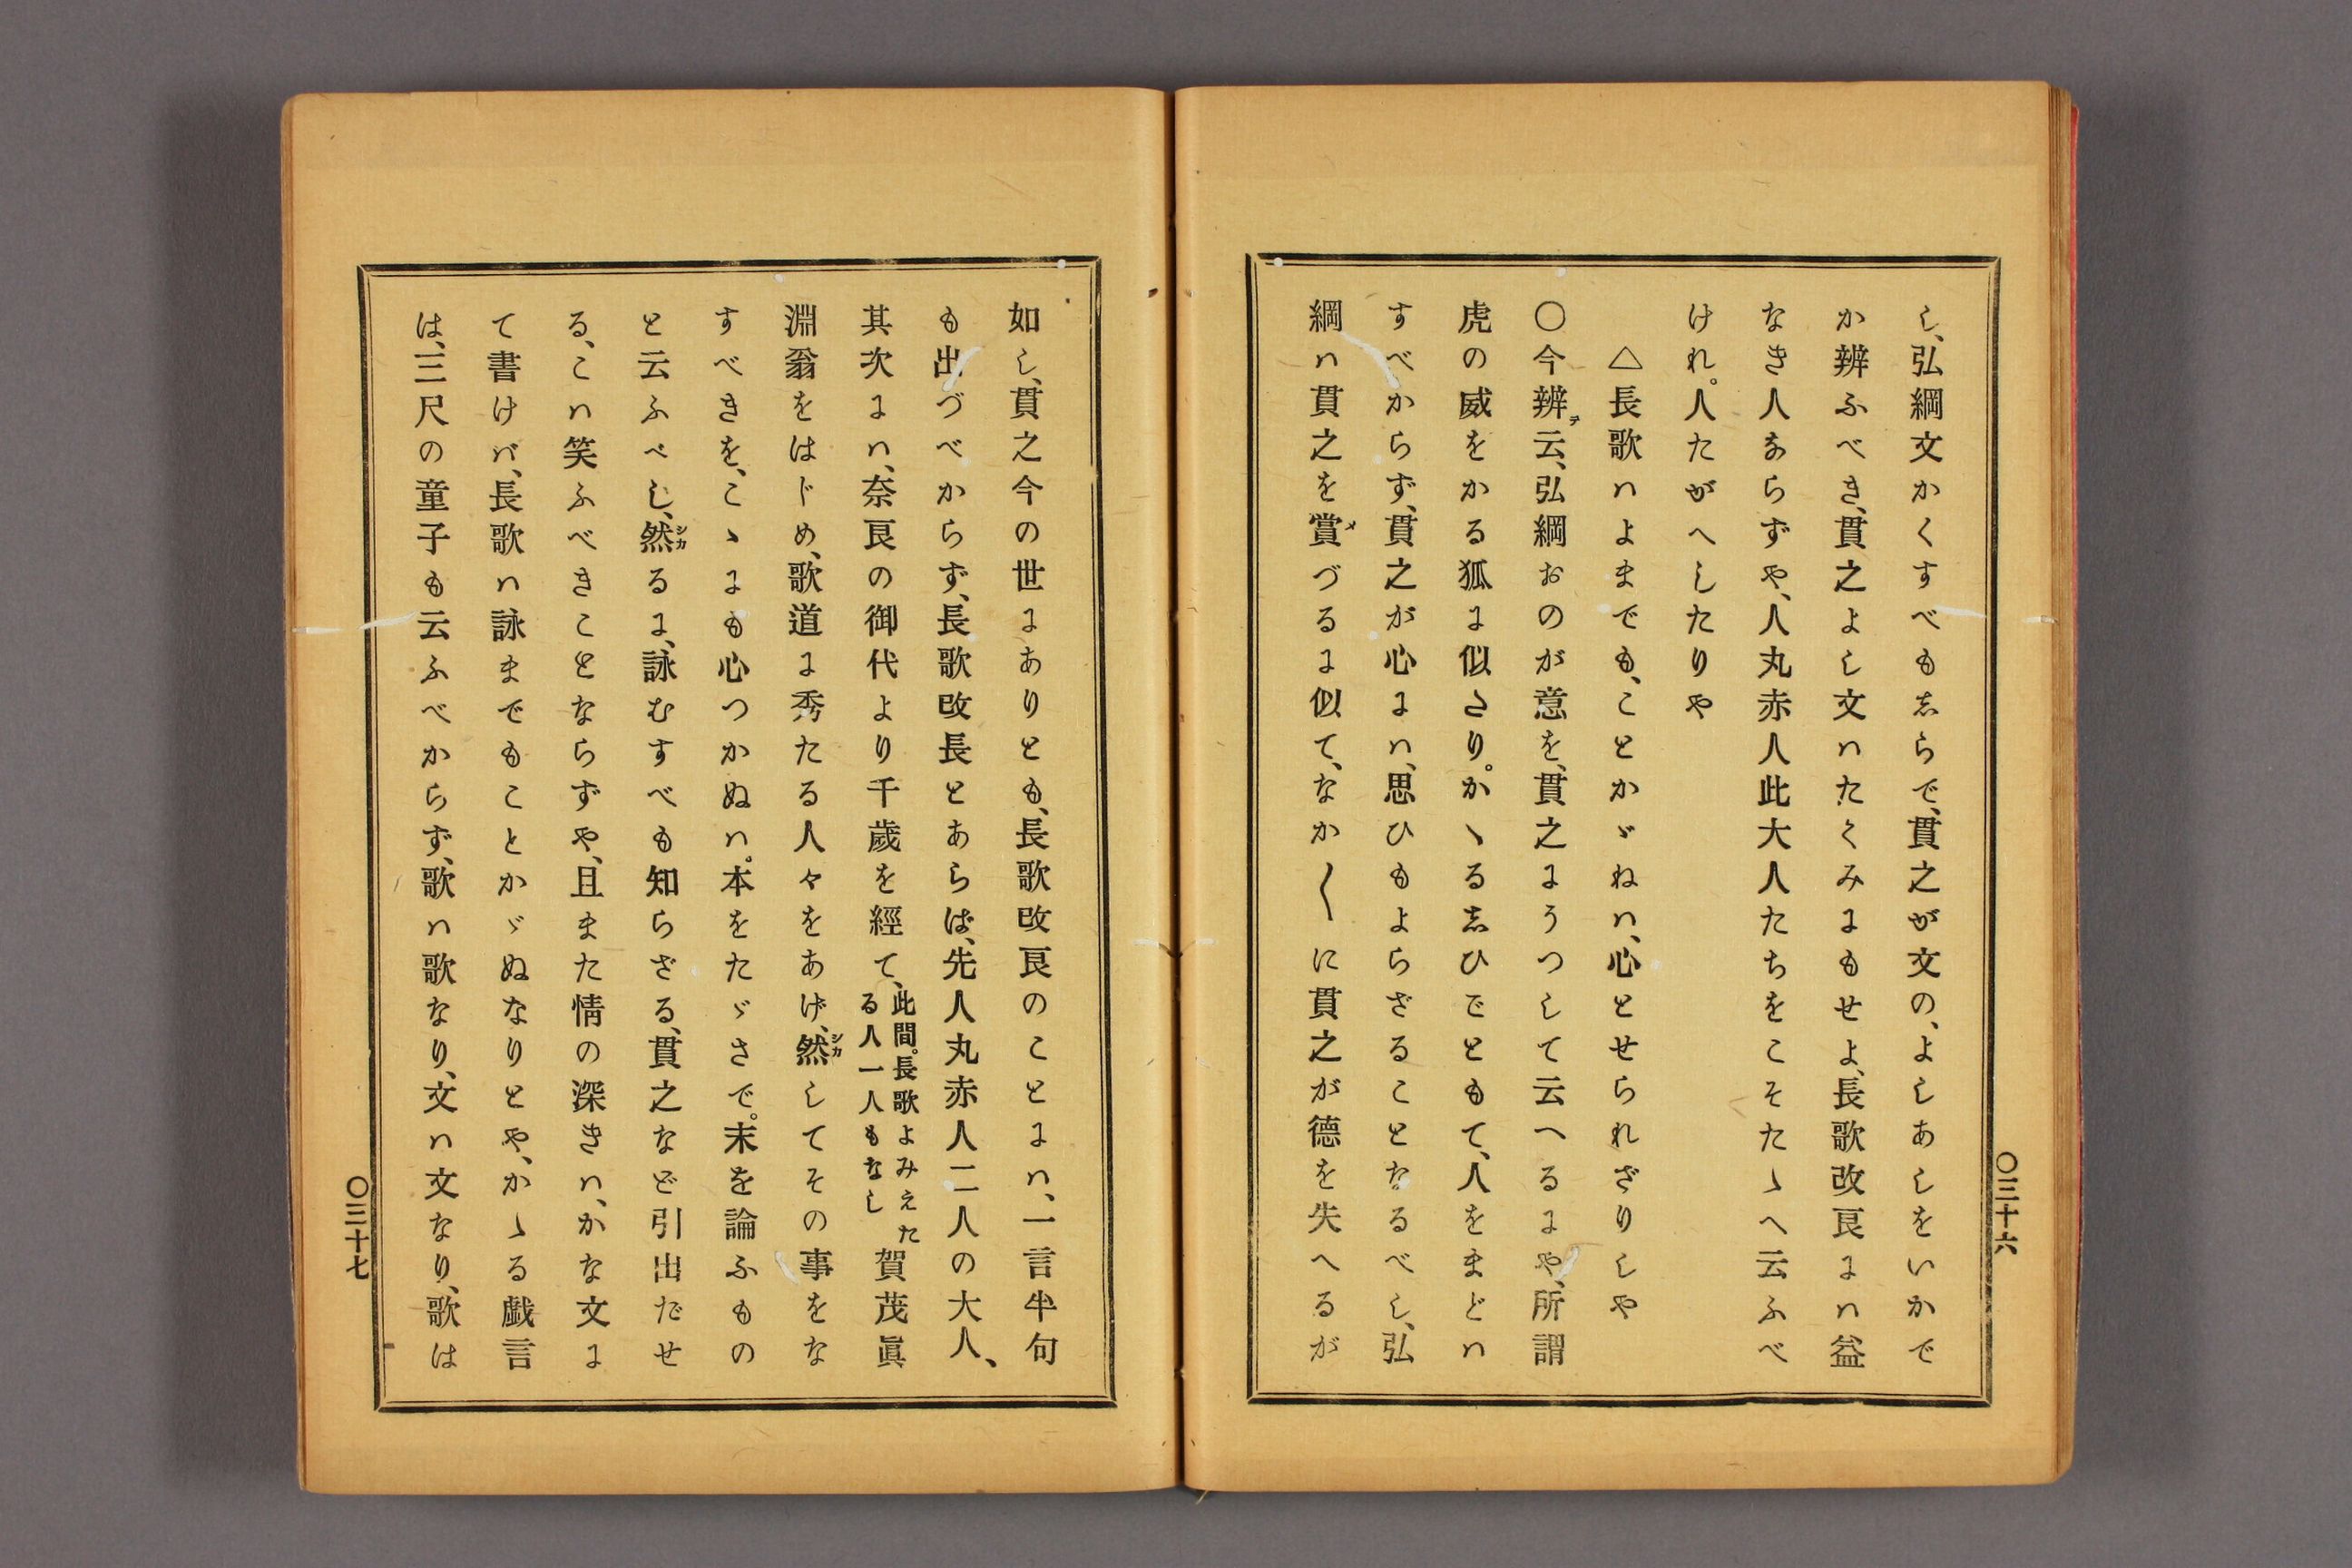 し、弘綱文かくすべも志らで、貫之が文の、よしあしをいかで
か辨ふべき、貫之よし文ハたくみにもせよ、長歌改良にハ益
なき人ならずや、人丸赤人此大人たちをこそたゝへ云ふべ
けれ。人たがへしたりや
△長歌ハよまでも、ことかゞねハ、心とせられざりしや
〇今辨テ云、弘綱おのが意を、貫之にうつして云へるにや、所謂
虎の威をかる狐に似たり。かゝる志ひごともて、人をまどハ
すべからず、貫之が心にハ、思ひもよらざることなるべし、弘
綱ハ貫之を賞メづるに似て、なか〱に貫之が德を失へるが
〇三十六
如し、貫之今の世にありとも、長歌改良のことにハ、一言半句
も出づべからず、長歌改長とあらば、先人丸赤人二人の大人、
其次にハ、奈良の御代より千歲を經て、此間。長歌よみえたる人一人もなし賀茂眞
淵翁をはじめ、歌道に秀たる人々をあげ、然シカしてその事をな
すべきを、こゝにも心つかぬハ。本をたゞさで。末を論ふもの
と云ふべし、然シカるに、詠むすべも知らざる、貫之など引出だせ
る、こハ笑ふべきことならずや、且また情の深きハ、かな文に
て書けバ、長歌ハ詠までもことかゞぬなりとや、かゝる戯言
は、三尺の童子も云ふべからず、歌ハ歌なり、文ハ文なり、歌は
〇三十七